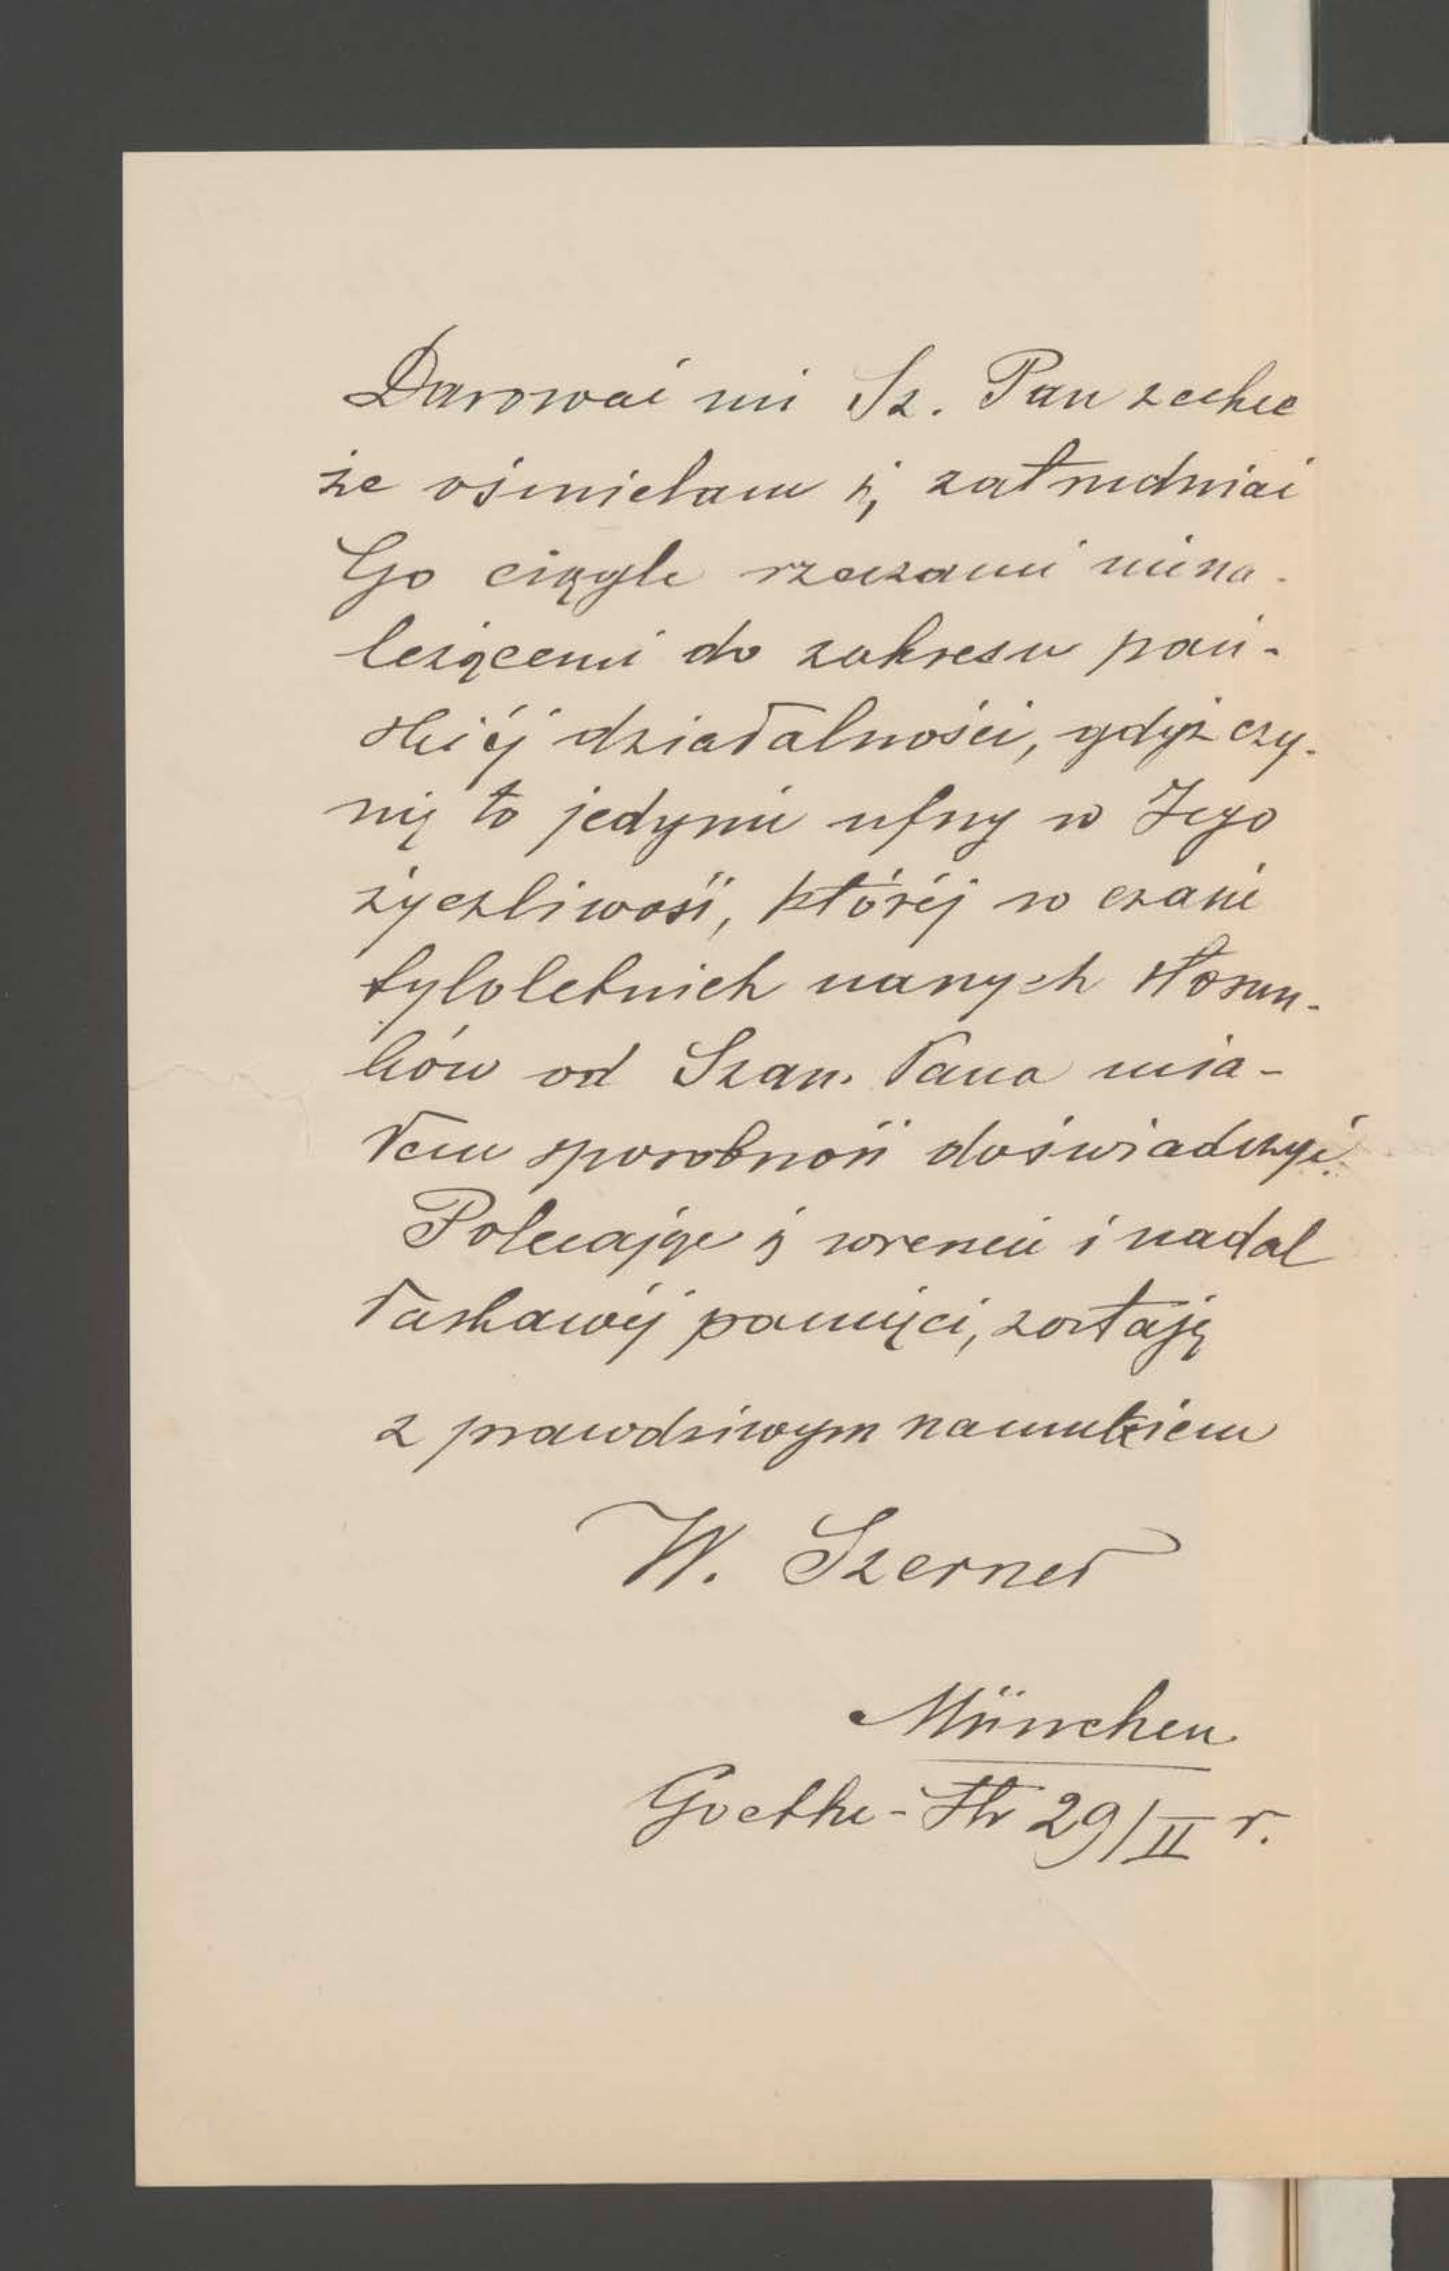 Darować mi Sz. Pan zechce
że ośmielam się zatrudniać
Go ciągle rzeczami niena-
leżącemi do zakresu pań-
skiéj działalności, gdyż czy-
nię to jedynie ufny w Jego
życzliwość, któréj w czasie
tyloletnich naszych stosun-
ków od Szan. Pana mia-
łem sposobność doświadczyć.
Polecając się wreszcie i nadal
łaskawéj pamięci, zostaję
z prawdziwym szacunkiem
W. Szerner
München
Goethe-Str 29/II r.